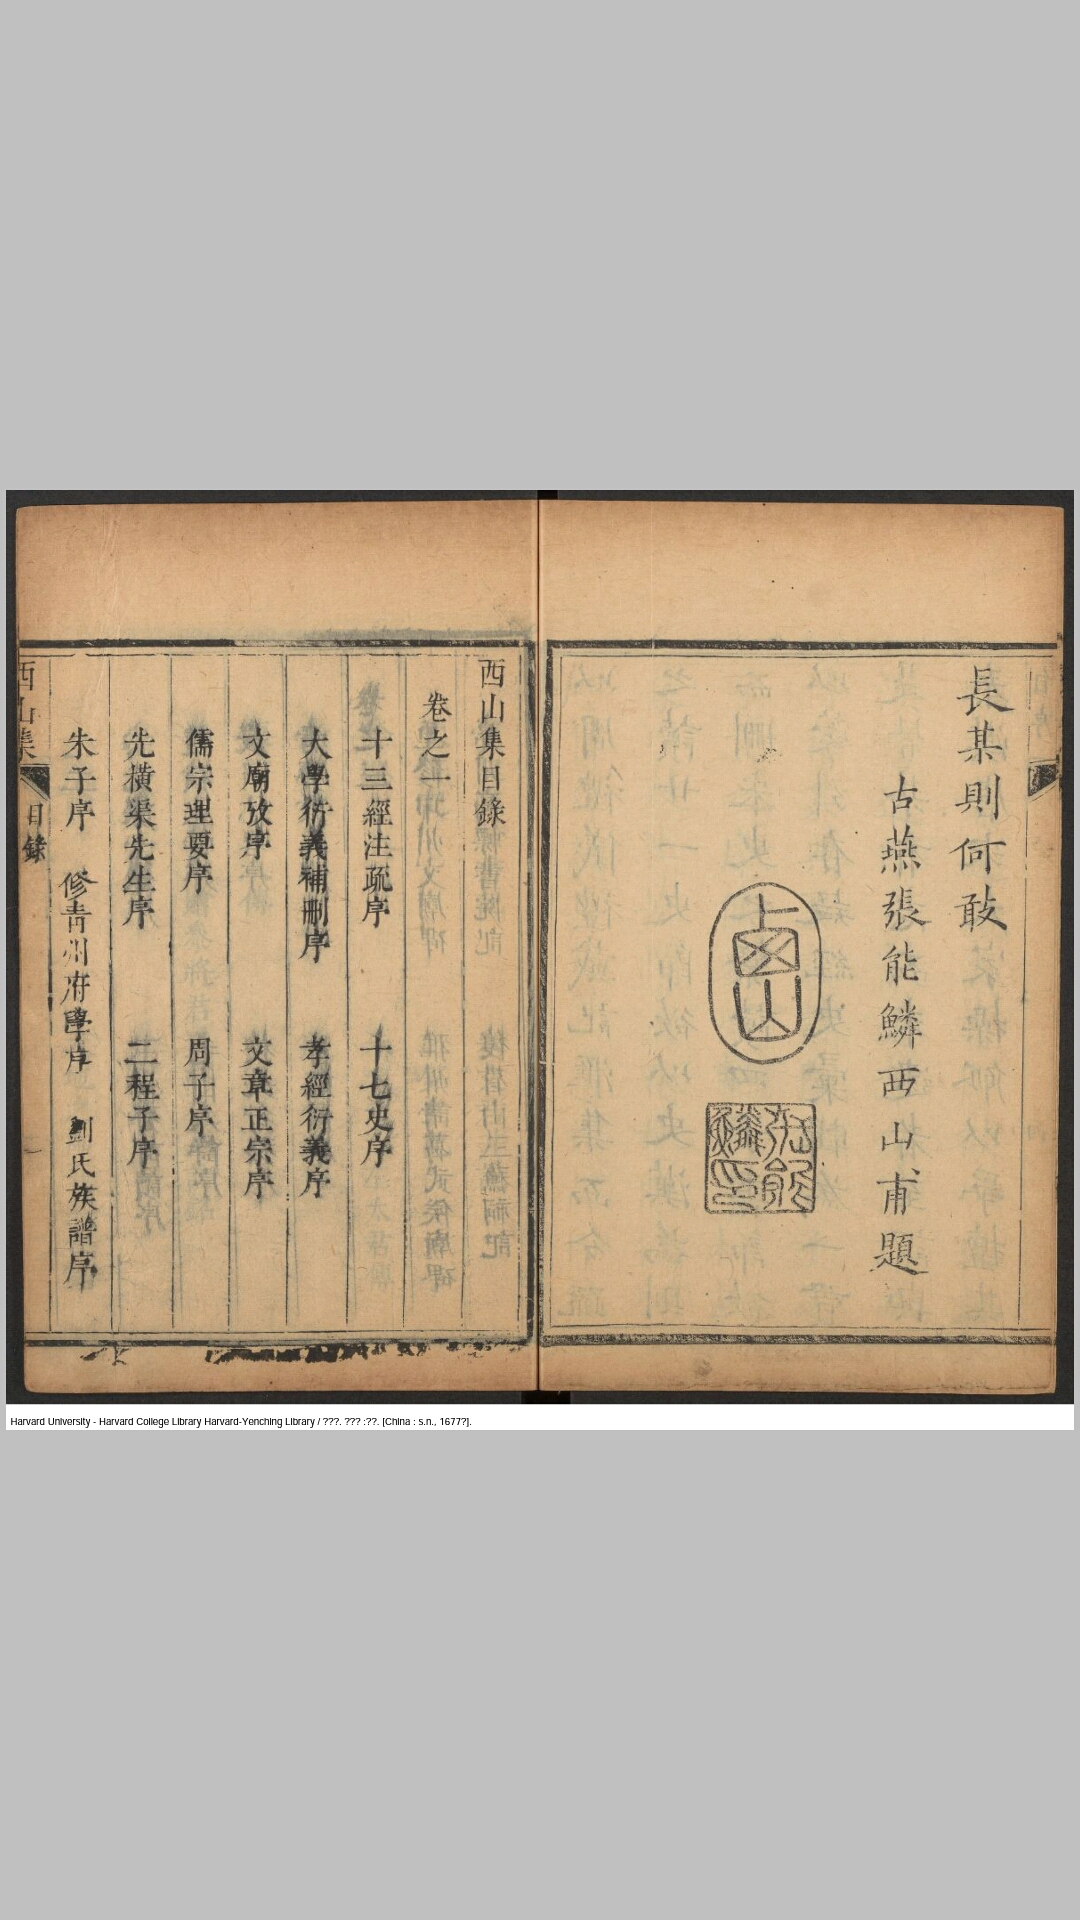 長某則何敢
古燕張能鱗西山甫題
西山
張能鱗印
西山集目錄
卷之一
十三經注疏序 十七史序
大學衍義補刪序 孝經衍義序
文廟攷序 文章正宗序
儒宗理要序 周子序
先橫渠先生序 二程子序
朱子序 修青州府學序 劉氏族譜序
西山集 目錄 一
Harvard University - Harvard College Library Harvard-Yenching Library / ???. ??? :??. [China : s.n., 1677?].